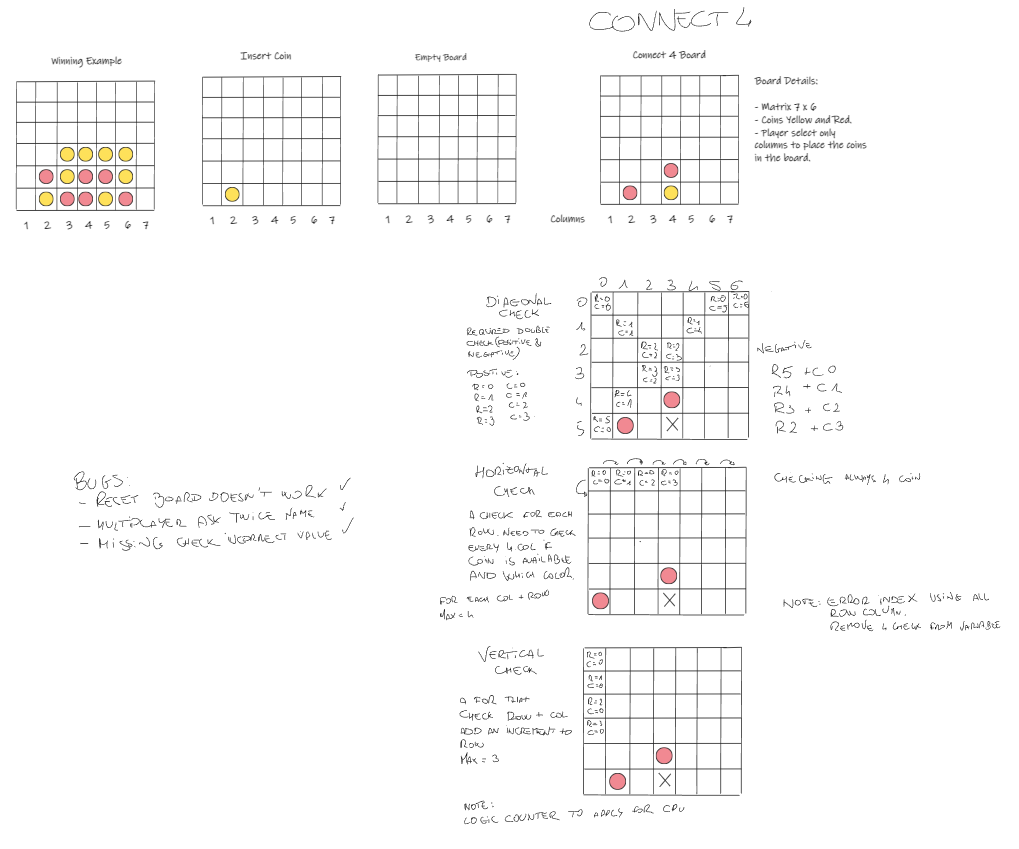 CONNECT 4
Winning Example
Insert Coin
Empty Board
Connect 4 Board
1 2 3 4 5 6 7
1 2 3 4 5 6 7
1 2 3 4 5 6 7
Columns 1 2 3 4 5 6 7
Board Details:
- Matrix 7 x 6
- Coins Yellow and Red.
- Player select only
columns to place the coins
in the board.
DIAGONAL
CHECK
REQUIRED DOUBLE
CHECK (POSITIVE &
NEGATIVE)
POSITIVE:
R=0 C=0
R=1 C=1
R=2 C=2
R=3 C=3
0 1 2 3 4 5 6
0
1
2
3
4
5
R=0
C=0
R=0
C=5
R=0
C=6
R=1
C=1
R=1
C=4
R=2
C=2
R=2
C=3
R=3
C=2
R=3
C=3
R=4
C=1
R=5
C=0
X
NEGATIVE
R5 + C0
R4 + C1
R3 + C2
R2 + C3
BUGS:
- RESET BOARD DOESN'T WORK ✓
- MULTIPLAYER ASK TWICE NAME ✓
- MISSING CHECK INCORRECT VALUE ✓
HORIZONTAL
CHECK
A CHECK FOR EACH
ROW. NEED TO CHECK
EVERY 4 COL IF
COIN IS AVAILABLE
AND WHICH COLOR.
FOR EACH COL + ROW
MAX = 4
R=0
C=0
R=0
C=1
R=0
C=2
R=0
C=3
X
CHECKING ALWAYS 4 COIN
NOTE: ERROR INDEX USING ALL
ROW COLUMN.
REMOVE 4 CHECK FROM VARIABLE
VERTICAL
CHECK
A FOR THAT
CHECK ROW + COL
ADD AN INCREMENT TO
ROW
MAX = 3
R=0
C=0
R=1
C=0
R=2
C=0
R=3
C=0
X
NOTE:
LOGIC COUNTER TO APPLY FOR CPU